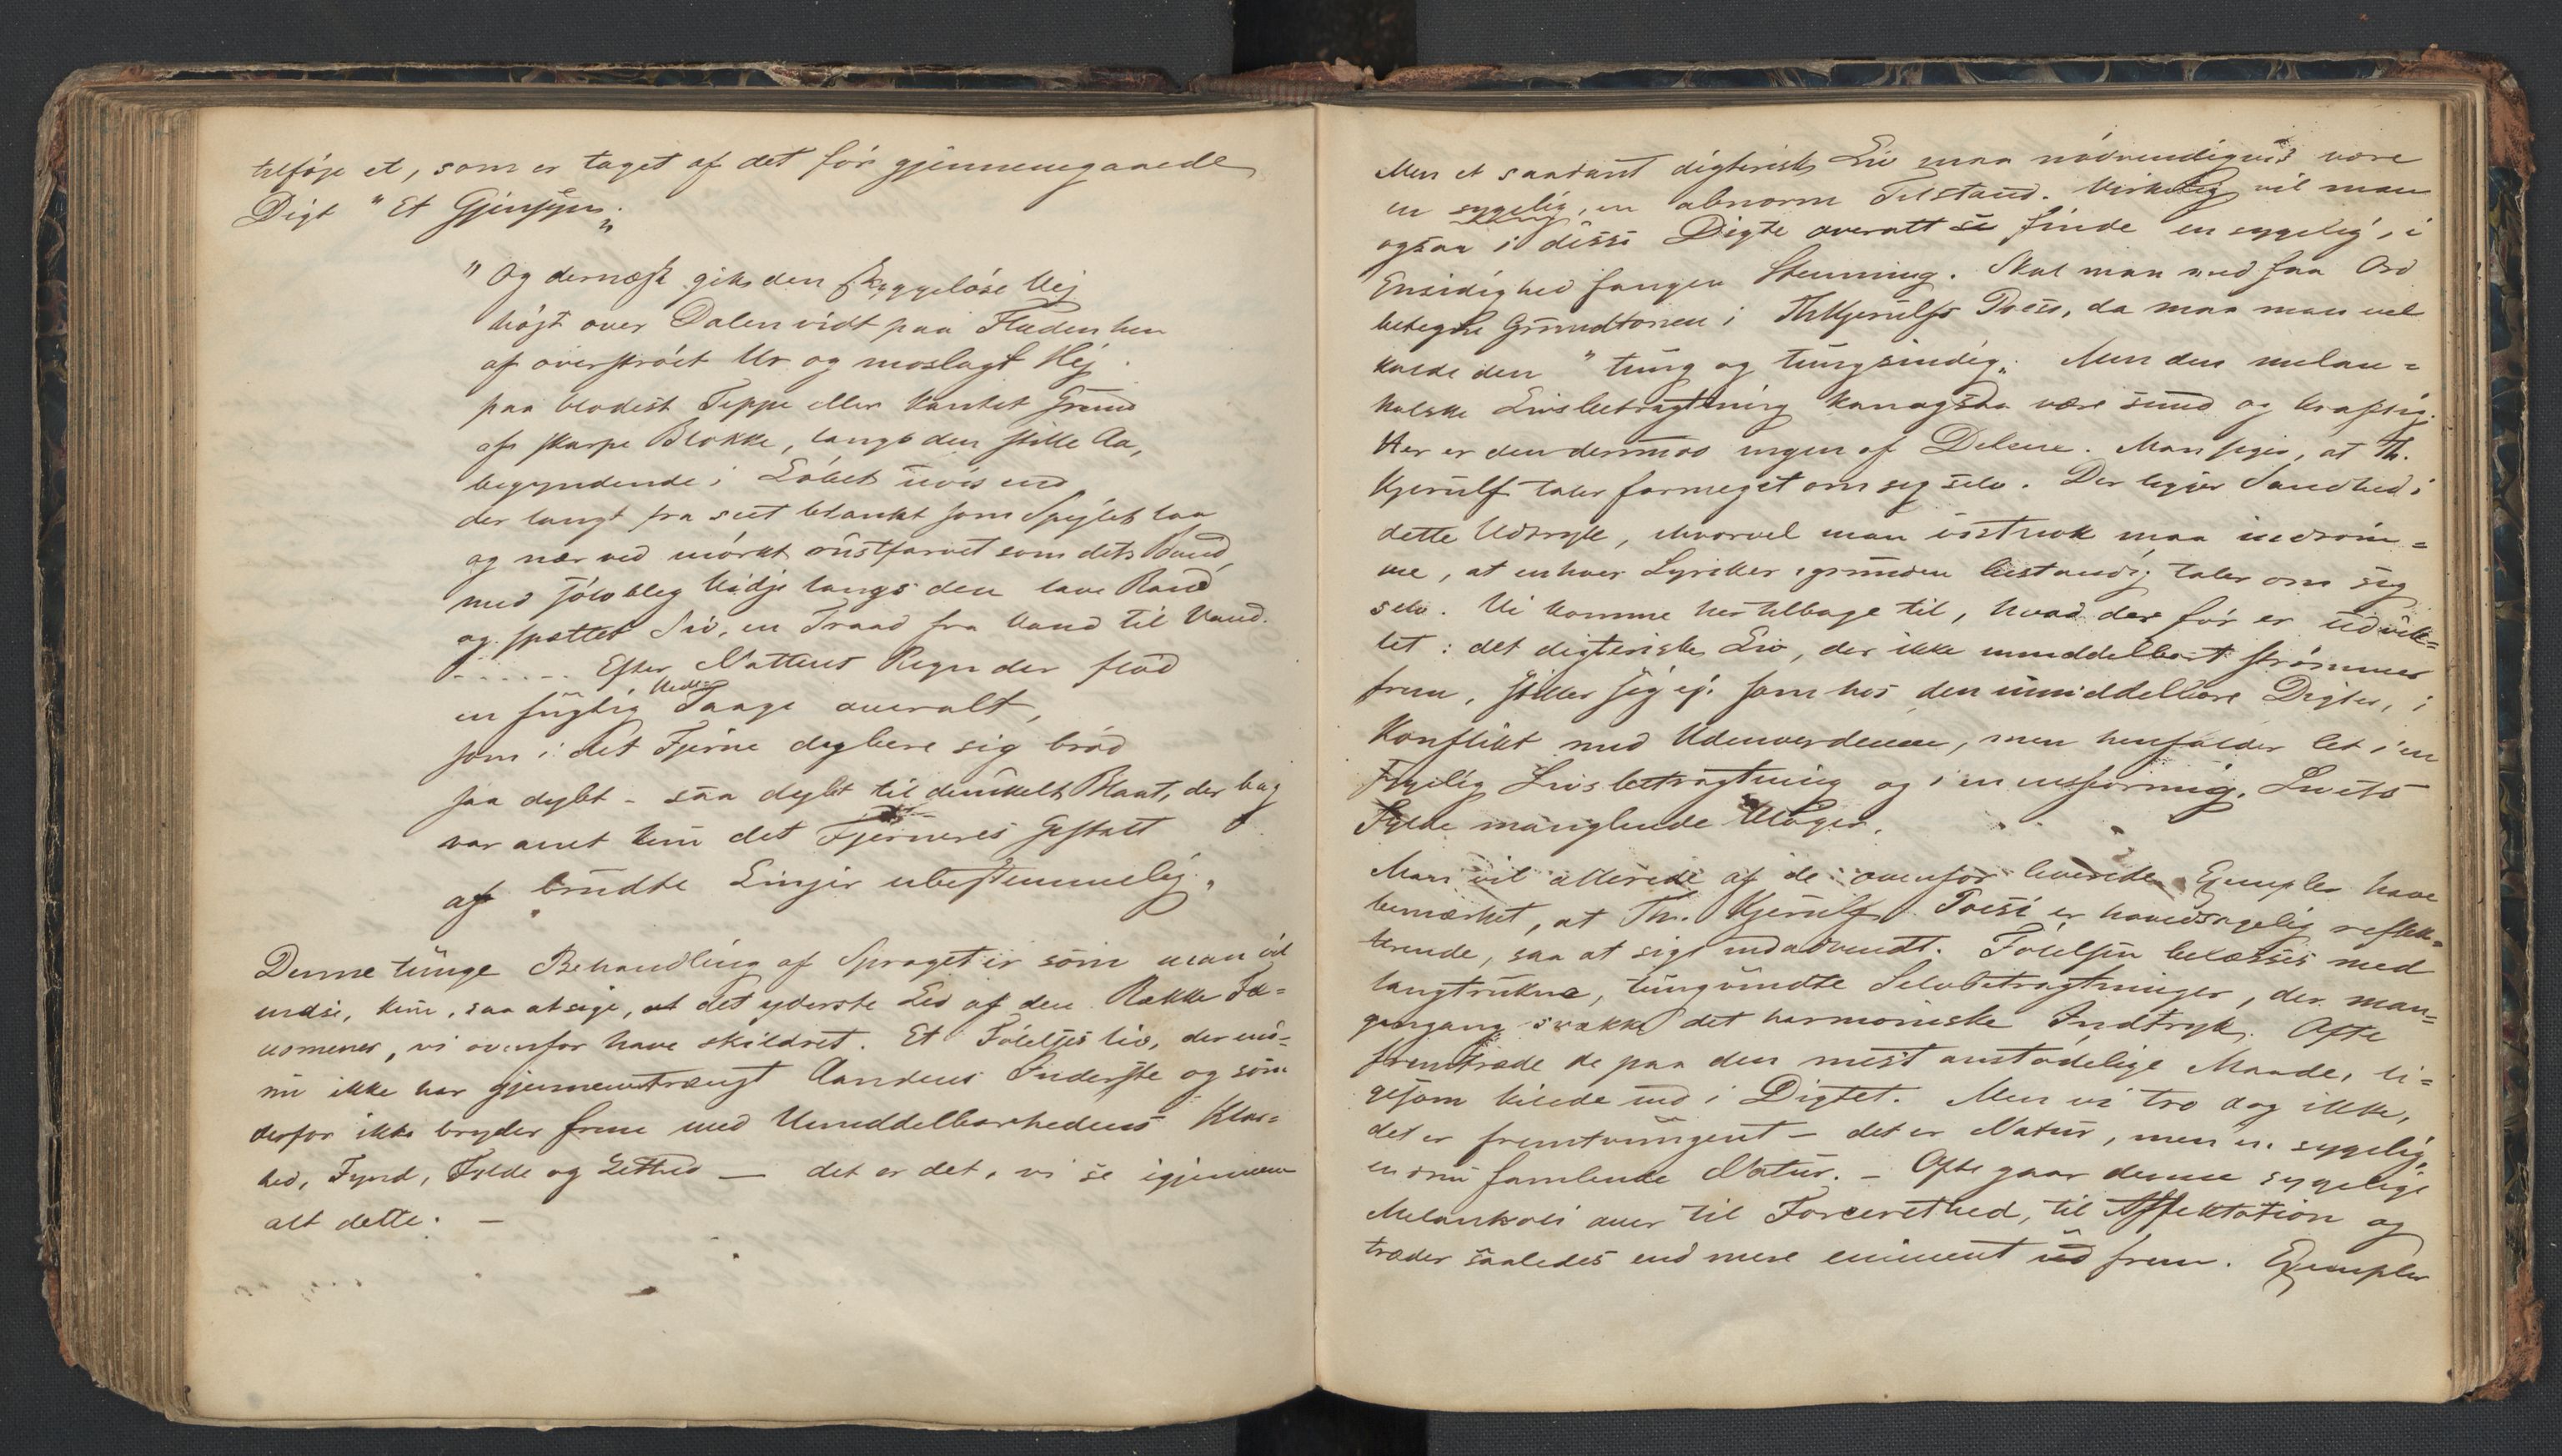 tilføje et, som er taget af det før gjennemgaaede
Digt "Et Gjensyn„
"Og dernæst gik den skyggeløse Vej
højt over Dalen vidt paa Fladen hen
af overstrøet Ur og moslagt Hej
paa blødest Teppe eller kantet Grund
af skarpe Blokke, langs den stille Aa,
begyndende i Løbet uvis end
der langt fra seet blankt som Spejlet laa
og nær ved mørkt rustfarvet som dets Bund,
med sølvbleg Vidje langs den lave Rand
og spættet Siv, en Traad fra Vand til Vand.
. . . . . . Efter Nattens Regn der flød
en fugtig Taage overalt,
som i det Fjerne dybere sig brød
saa dybt - saa dybt til dunkelt Blaat, der bag
var anet kun det Fjerneres Gestalt
af brudte Linjer ubestemmelig„
Denne tunge Behandling af Sproget er som man vil
indse, kun, saa at sige, det yderste Led af den Række Fæ=
nomener, vi ovenfor have skildret. Et Følelsesliv, der end=
nu ikke har gjennemtrængt Aandens Inderste og som
derfor ikke bryder frem med Umiddelbarhedens Klar=
hed, Fynd, Fylde og Lethed — det er det, vi se igjennem
alt dette. —
Men et saadant digterisk Liv maa nødvendigvis være
en sygelig, en abnorm Tilstand. Virkelig vil man
ogsaa i disse Digte overalt finde en sygelig, i
Ensidighed fangen Stemning. Skal man med faa Ord
betegne Grundtonen i Th Kjerulfs Poesi, da maa man vel
kalde den "tung og tungsindig„. Men den melan=
kolske Livsbetragtning kan ogsaa være sund og kraftig.
Her er den derimod ingen af Delene. Man siger, at Th.
Kjerulf taler formeget om sig selv. Der ligger Sandhed i
dette Udtryk, hvorvel man istrak maa indrøm=
me, at enhver Lyriker igrunden bestandig taler om sig
selv. Vi komme her tilbage til, hvad der før er udvik=
let: det digteriske Liv, der ikke umiddelbart strømmer
frem, stiller sig ej, som hos den umiddelbare Digter, i
Konflikt med Udenverdenen, men henfalder let i en
sygelig Livsbetragtning og i en ensformig, Livets
Fylde manglende Klager.
Man vil allerede af de ovenfor leverede Exempler have
bemærket, at Th. Kjerulfs Poesi er hovedsagelig reflek=
terende, saa at sige indadvendt. Følelsen belæsses med
langtrukne, tungvindte Selvbetragtninger, der man=
gengang svække det harmoniske Indtryk. Ofte
fremtræde de paa den mest anstødelige Maade, li=
gesom kilede ind i Digtet. Men vi tro dog ikke,
det er fremtvungent - det er Natur, men en sygelig,
en endnu famlende Natur. - Ofte gaar denne sygelige
Melankoli over til Forcerethed, til Affektation og
træder saaledes end mere eminent frem. Exempler